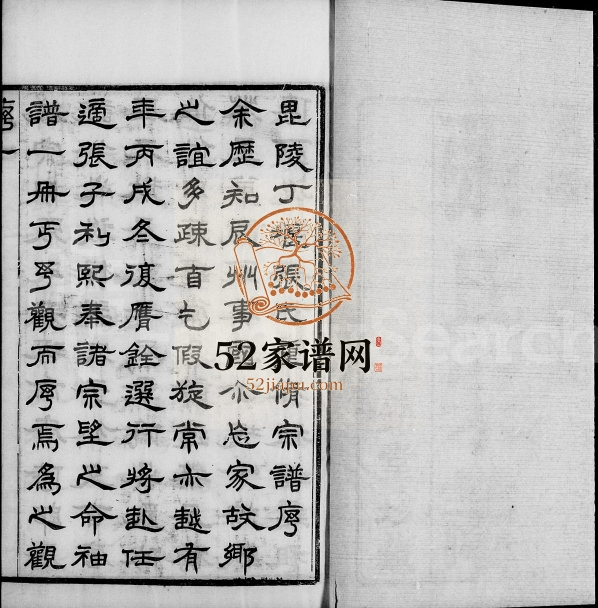 毘陵丁堰張氏重脩宗譜序
余歷知辰州事亦忘家故鄉
之誼多疎自乞假旋常亦越有
年丙戌冬復膺銓選行將赴任
適張子利熙奉諸宗望之命袖
譜一冊丐予觀而序焉為之觀
序一
52家谱网
52jiapu.com